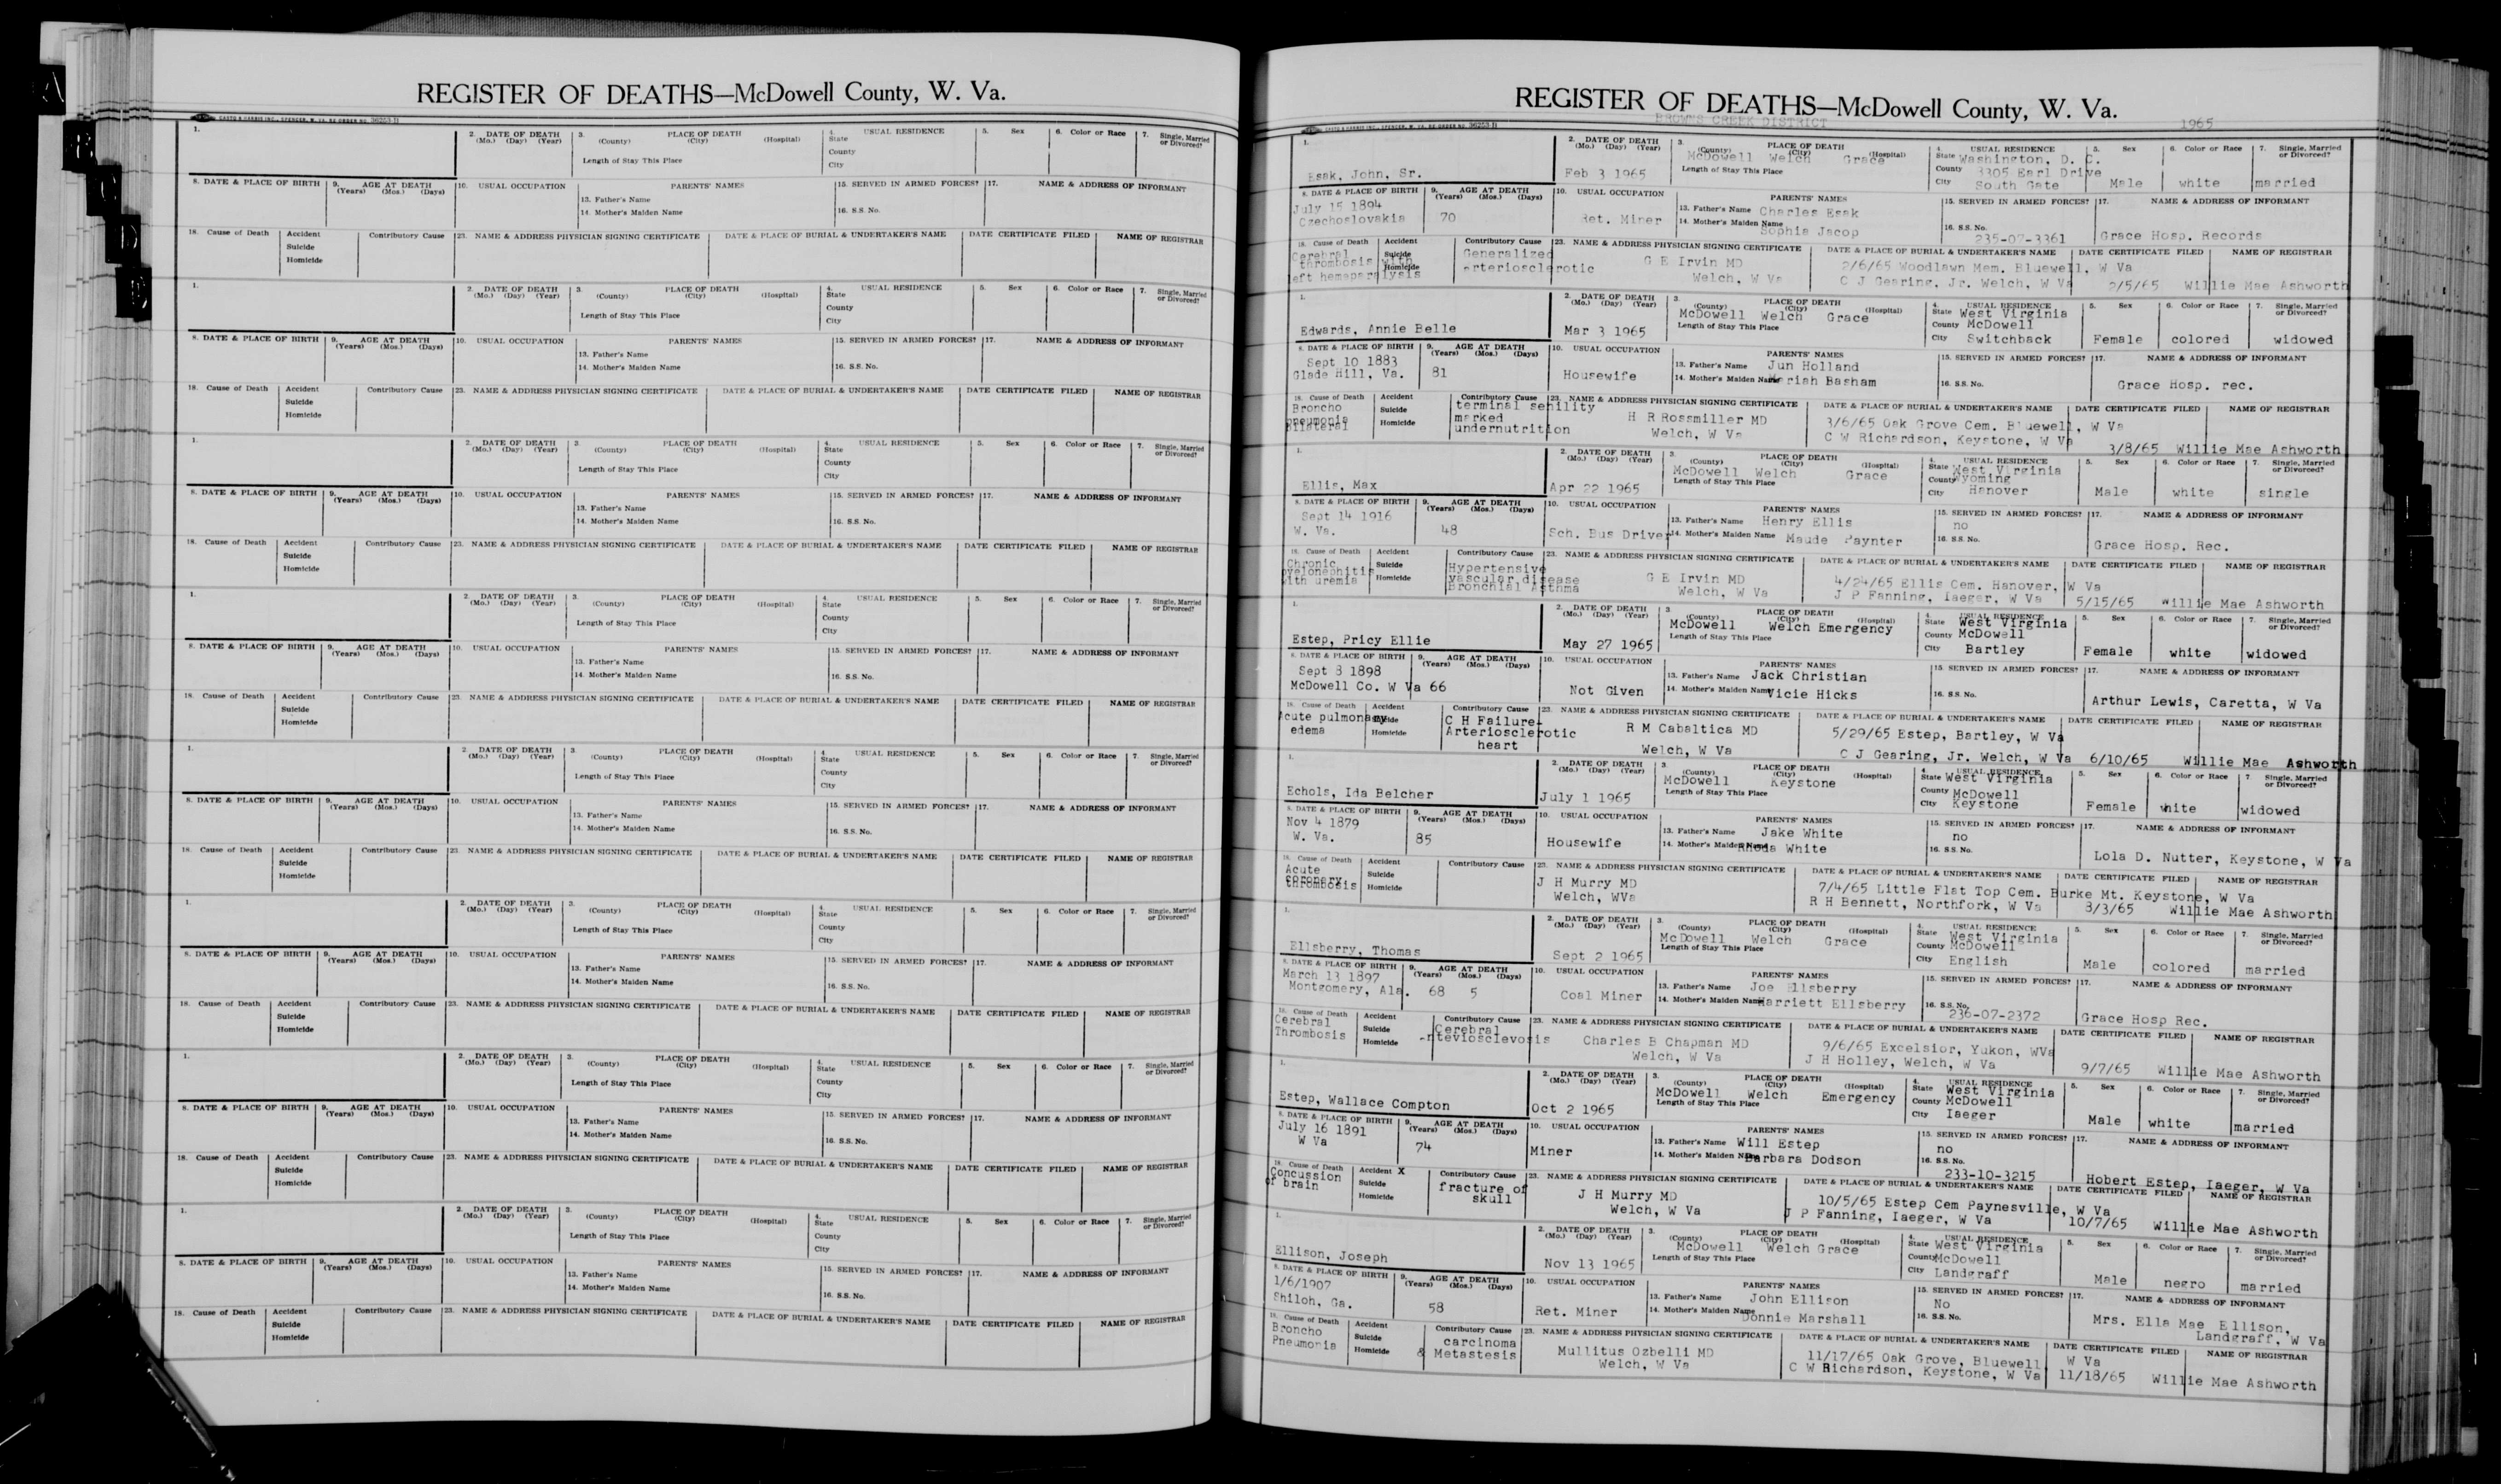 REGISTER OF DEATHS—McDowell County, W. Va.
CASTO & HARRIS INC., SPENCER, W. VA. RE-ORDER NO. 36253-D
1. 2. DATE OF DEATH (Mo.) (Day) (Year) 3. PLACE OF DEATH (County) (City) (Hospital) Length of Stay This Place 4. USUAL RESIDENCE State County City 5. Sex 6. Color or Race 7. Single, Married or Divorced?
8. DATE & PLACE OF BIRTH 9. AGE AT DEATH (Years) (Mos.) (Days) 10. USUAL OCCUPATION PARENTS' NAMES 13. Father's Name 14. Mother's Maiden Name 15. SERVED IN ARMED FORCES? 16. S.S. No. 17. NAME & ADDRESS OF INFORMANT
18. Cause of Death Accident Suicide Homicide Contributory Cause 23. NAME & ADDRESS PHYSICIAN SIGNING CERTIFICATE DATE & PLACE OF BURIAL & UNDERTAKER'S NAME DATE CERTIFICATE FILED NAME OF REGISTRAR
REGISTER OF DEATHS—McDowell County, W. Va.
CASTO & HARRIS INC., SPENCER, W. VA. RE-ORDER NO. 36253-D
BROWNS CREEK DISTRICT 1965
Esak, John, Sr.
Feb 3 1965
McDowell Welch Grace
State Washington, D. C.
County 3305 Earl Drive
City South Gate
Male white married
July 15 1894
Czechoslovakia 70
Ret. Miner
13. Father's Name Charles Esak
14. Mother's Maiden Name Sophia Jacop
16. S.S. No. 235-07-3361
Grace Hosp. Records
Cerebral thrombosis with left hemeparalysis
Generalized arteriosclerotic
G E Irvin MD
Welch, W Va
2/6/65 Woodlawn Mem. Bluewell, W Va
C J Gearing, Jr. Welch, W Va 2/5/65 Willie Mae Ashworth
Edwards, Annie Belle
Mar 3 1965
McDowell Welch Grace
State West Virginia
County McDowell
City Switchback
Female colored widowed
Sept 10 1883
Glade Hill, Va. 81
Housewife
13. Father's Name Jun Holland
14. Mother's Maiden Name Mariah Basham
Grace Hosp. rec.
Broncho pneumonia Bilateral
terminal senility
marked
undernutrition
H R Rossmiller MD
Welch, W Va
3/6/65 Oak Grove Cem. Bluewell, W Va
C W Richardson, Keystone, W Va 3/8/65 Willie Mae Ashworth
Ellis, Max
Apr 22 1965
McDowell Welch Grace
State West Virginia
County Wyoming
City Hanover
Male white single
Sept 14 1916
W. Va. 48
Sch. Bus Driver
13. Father's Name Henry Ellis
14. Mother's Maiden Name Maude Paynter
no
Grace Hosp. Rec.
Chronic pyelonephitis with uremia
Hypertensive
vascular disease
Bronchial Asthma
G E Irvin MD
Welch, W Va
4/24/65 Ellis Cem. Hanover, W Va
J P Fanning, Iaeger, W Va 5/15/65 Willie Mae Ashworth
Estep, Pricy Ellie
May 27 1965
McDowell Welch Emergency
State West Virginia
County McDowell
City Bartley
Female white widowed
Sept 8 1898
McDowell Co. W Va 66
Not Given
13. Father's Name Jack Christian
14. Mother's Maiden Name Vicie Hicks
Arthur Lewis, Caretta, W Va
Acute pulmonary edema
C H Failure
Arteriosclerotic
heart
R M Cabaltica MD
Welch, W Va
5/29/65 Estep, Bartley, W Va
C J Gearing, Jr. Welch, W Va 6/10/65 Willie Mae Ashworth
Echols, Ida Belcher
July 1 1965
McDowell Keystone
State West Virginia
County McDowell
City Keystone
Female white widowed
Nov 4 1879
W. Va. 85
Housewife
13. Father's Name Jake White
14. Mother's Maiden Name Rhoda White
no
Lola D. Nutter, Keystone, W Va
Acute coronary thrombosis
J H Murry MD
Welch, WVa
7/4/65 Little Flat Top Cem. Burke Mt. Keystone, W Va
R H Bennett, Northfork, W Va 8/3/65 Willie Mae Ashworth
Ellsberry, Thomas
Sept 2 1965
McDowell Welch Grace
State West Virginia
County McDowell
City English
Male colored married
March 13 1897
Montgomery, Ala. 68 5
Coal Miner
13. Father's Name Joe Ellsberry
14. Mother's Maiden Name Harriett Ellsberry
16. S.S. No. 236-07-2372
Grace Hosp Rec.
Cerebral Thrombosis
Cerebral
Charles B Chapman MD
Welch, W Va
9/6/65 Excelsior, Yukon, WVa
J H Holley, Welch, W Va 9/7/65 Willie Mae Ashworth
Estep, Wallace Compton
Oct 2 1965
McDowell Welch Emergency
State West Virginia
County McDowell
City Iaeger
Male white married
July 16 1891
W Va 74
Miner
13. Father's Name Will Estep
14. Mother's Maiden Name Barbara Dodson
no
16. S.S. No. 233-10-3215
Hobert Estep, Iaeger, W Va
Concussion of brain
Accident X
fracture of
skull
J H Murry MD
Welch, W Va
10/5/65 Estep Cem Paynesville, W Va
J P Fanning, Iaeger, W Va 10/7/65 Willie Mae Ashworth
Ellison, Joseph
Nov 13 1965
McDowell Welch Grace
State West Virginia
County McDowell
City Landgraff
Male negro married
1/6/1907
Shiloh, Ga. 58
Ret. Miner
13. Father's Name John Ellison
14. Mother's Maiden Name Donnie Marshall
No
Mrs. Ella Mae Ellison,
Landgraff, W Va
Broncho Pneumonia
carcinoma
& Metastesis
Mullitus Ozbelli MD
Welch, W Va
11/17/65 Oak Grove, Bluewell W Va
C W Richardson, Keystone, W Va 11/18/65 Willie Mae Ashworth